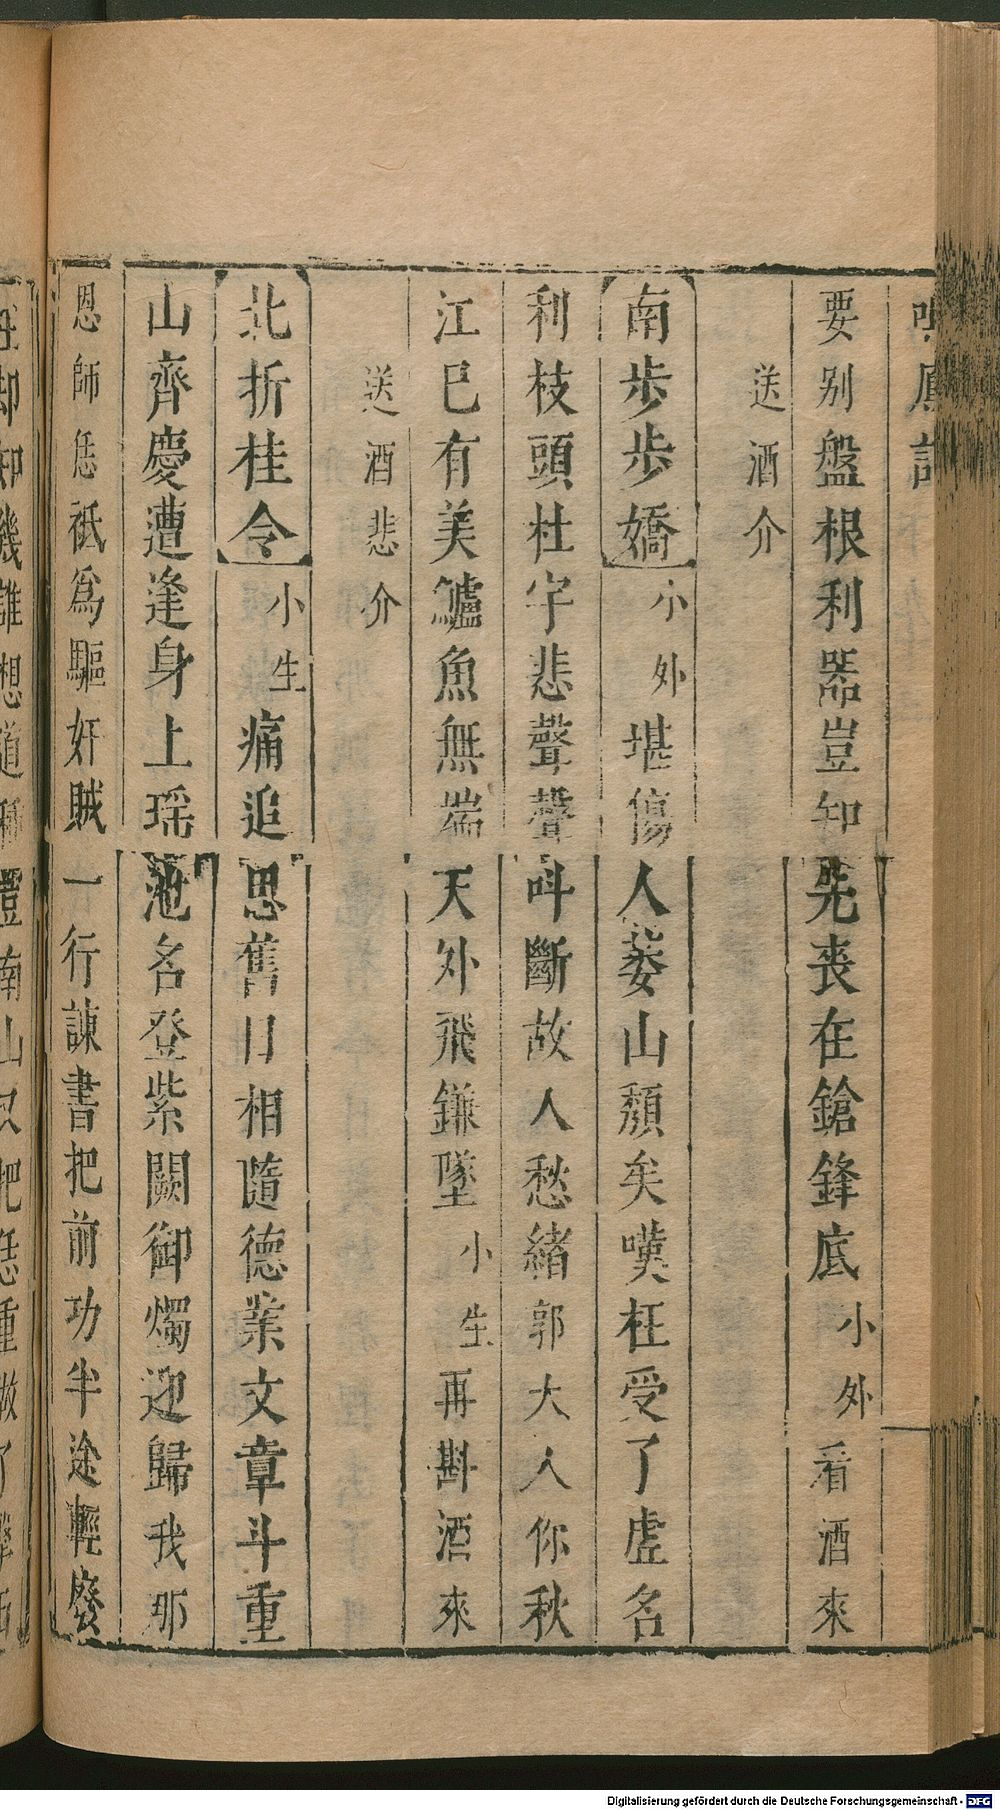 鳴鳳記
要別盤根利器豈知先喪在鎗鋒底小外看酒來
送酒介
南步步嬌小外堪傷人萎山頹矣嘆枉受了虛名
利枝頭杜宇悲聲聲叫斷故人愁緒郭大人你秋
江已有美鱸魚無端天外飛鎌墜小生再斟酒來
送酒悲介
北折桂令小生痛追思舊日相隨德業文章斗重
山齊慶遭逢身上瑶池名登紫闕御燭迎歸我那
恩師恁祇爲驅奸賊一行諫書把前功半途輕廢
却知機誰想道 南山只把恁重做了
Digitalisierung gefördert durch die Deutsche Forschungsgemeinschaft - DFG